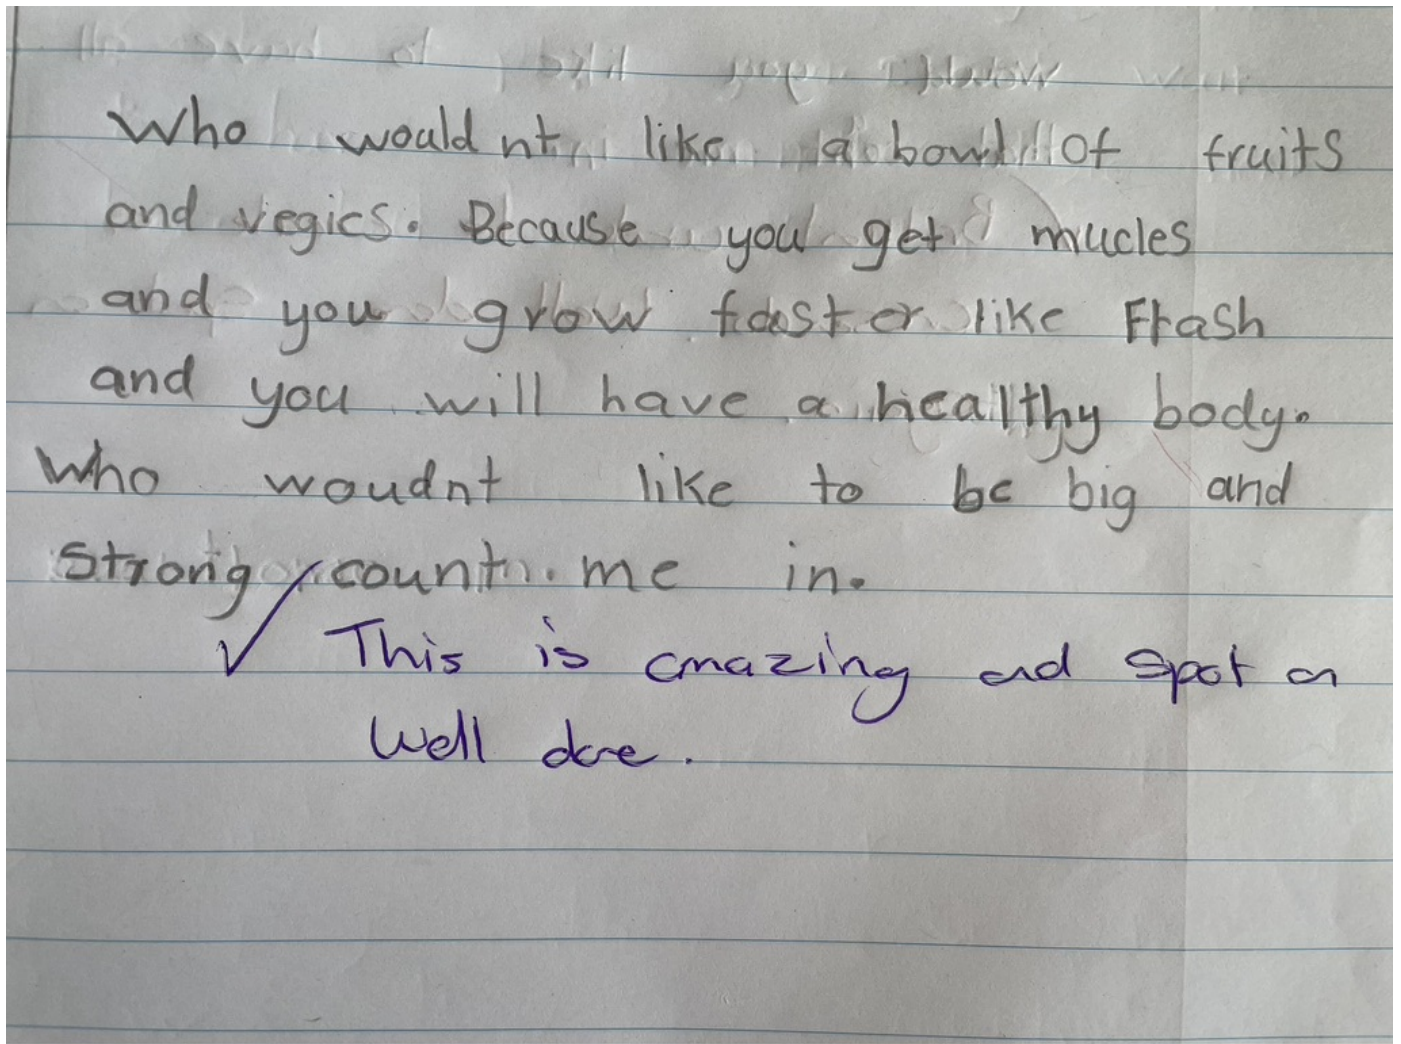 Who wouldnt like a bowl of fruits
and vegies. Because you get mucles
and you grow faster like Flash
and you will have a healthy body.
Who woudnt like to be big and
strong count me in.
This is amazing and spot on
Well done.